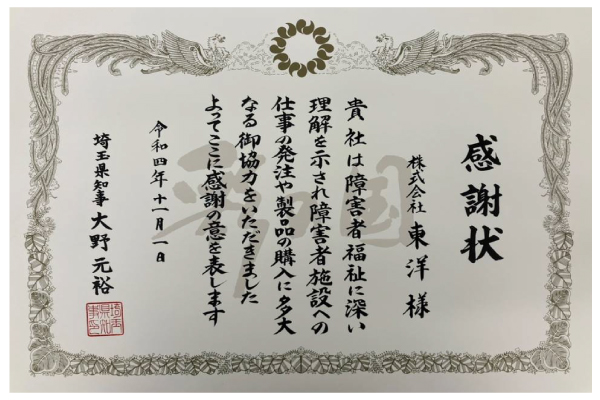 感謝状
株式会社 東洋 様
貴社は障害者福祉に深い
理解を示され障害者施設への
仕事の発注や製品の購入に多大
なる御協力をいただきました
よってここに感謝の意を表します
令和四年十一月一日
埼玉県知事 大野元裕
彩の国
埼玉県知事之印